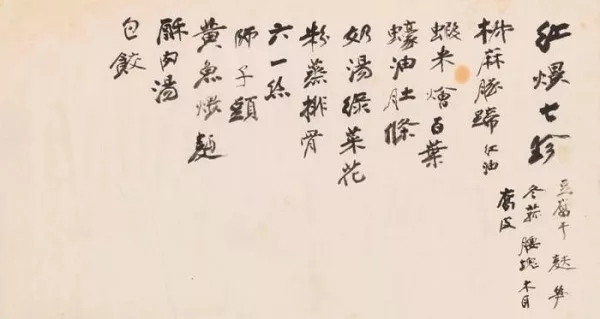 紅煨七珍
豆腐干 麩 笋
冬菰 腰塊 木耳
腐皮
椒麻豚蹄 紅油
蝦米燴百葉
蠔油肚條
奶湯綠菜花
粉蒸排骨
六一絲
師子頭
黃魚麵
酥肉湯
包餃